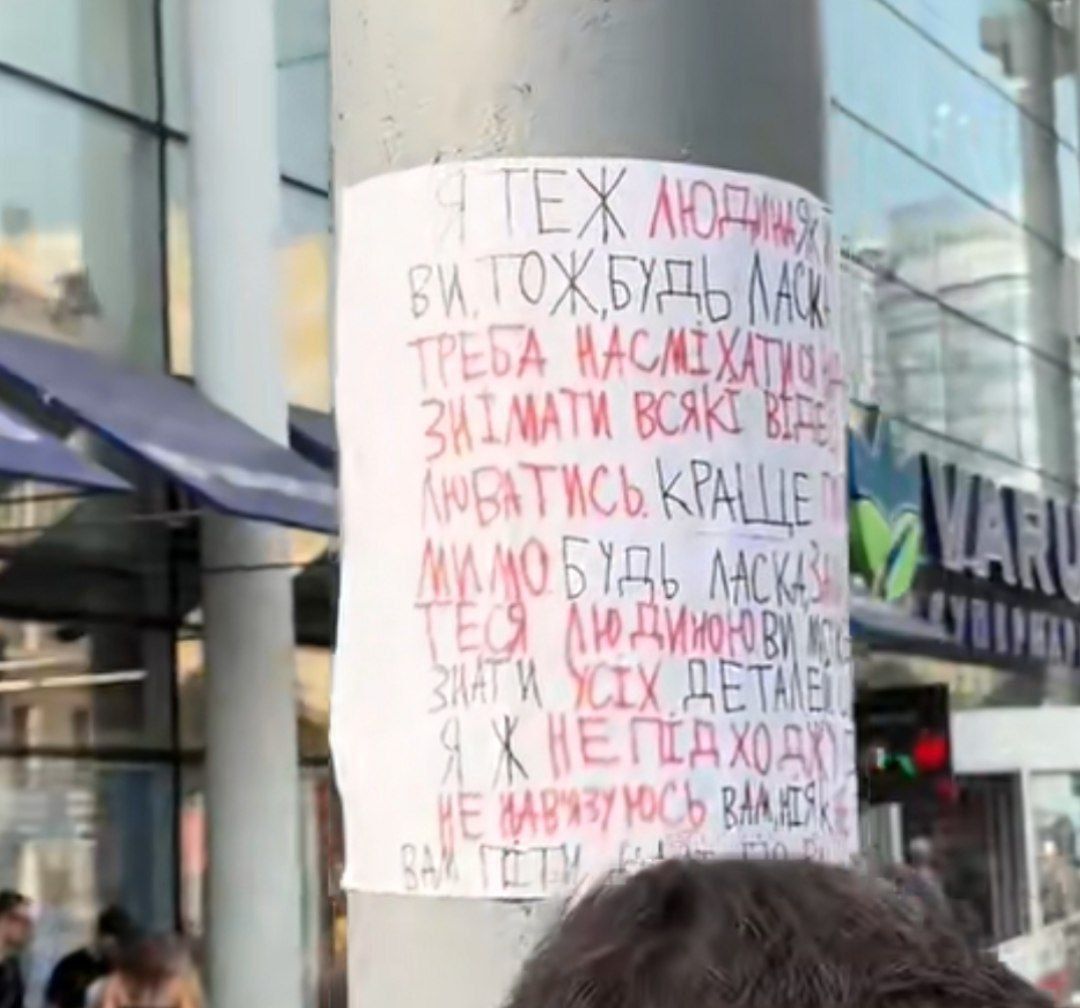 Я ТЕЖ ЛЮДИНА ЯК
ВИ, ТОЖ, БУДЬ ЛАСК
ТРЕБА НАСМІХАТИСЯ
ЗНІМАТИ ВСЯКІ ВІДЕ
ЛЮВАТИСЬ. КРАЩЕ
МИМО. БУДЬ ЛАСКА, ЗА
ТЕСЯ ЛЮДИНОЮ ВИ
ЗНАТИ УСІХ ДЕТАЛЕЙ
Я Ж НЕ ПІДХОДЖУ
НЕ НАВ'ЯЗУЮСЬ ВАМ, НІЯК
ВАМ
VARU